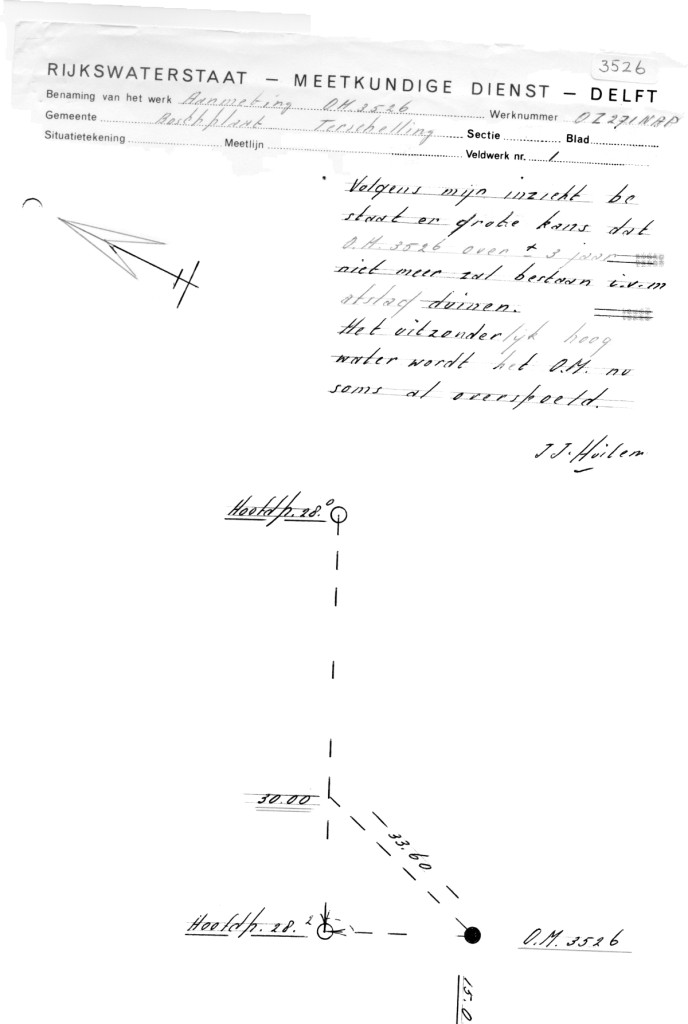 3526
RIJKSWATERSTAAT — MEETKUNDIGE DIENST — DELFT
Benaming van het werk Aanmeting O.M. 3526 Werknummer OZ271NAP
Gemeente Boschplaat Terschelling Sectie Blad
Situatietekening Meetlijn Veldwerk nr. 1
Volgens mijn inzicht be
staat er grote kans dat
O.M. 3526 over ± 3 jaar
niet meer zal bestaan i.v.m
afslag duinen.
Het uitzonderlijk hoog
water wordt het O.M. nu
soms al overspoeld.
J J. Huilem
Hoofdp. 28.0
30.00
33.60
Hoofdp. 28.2
O.M. 3526
15.0